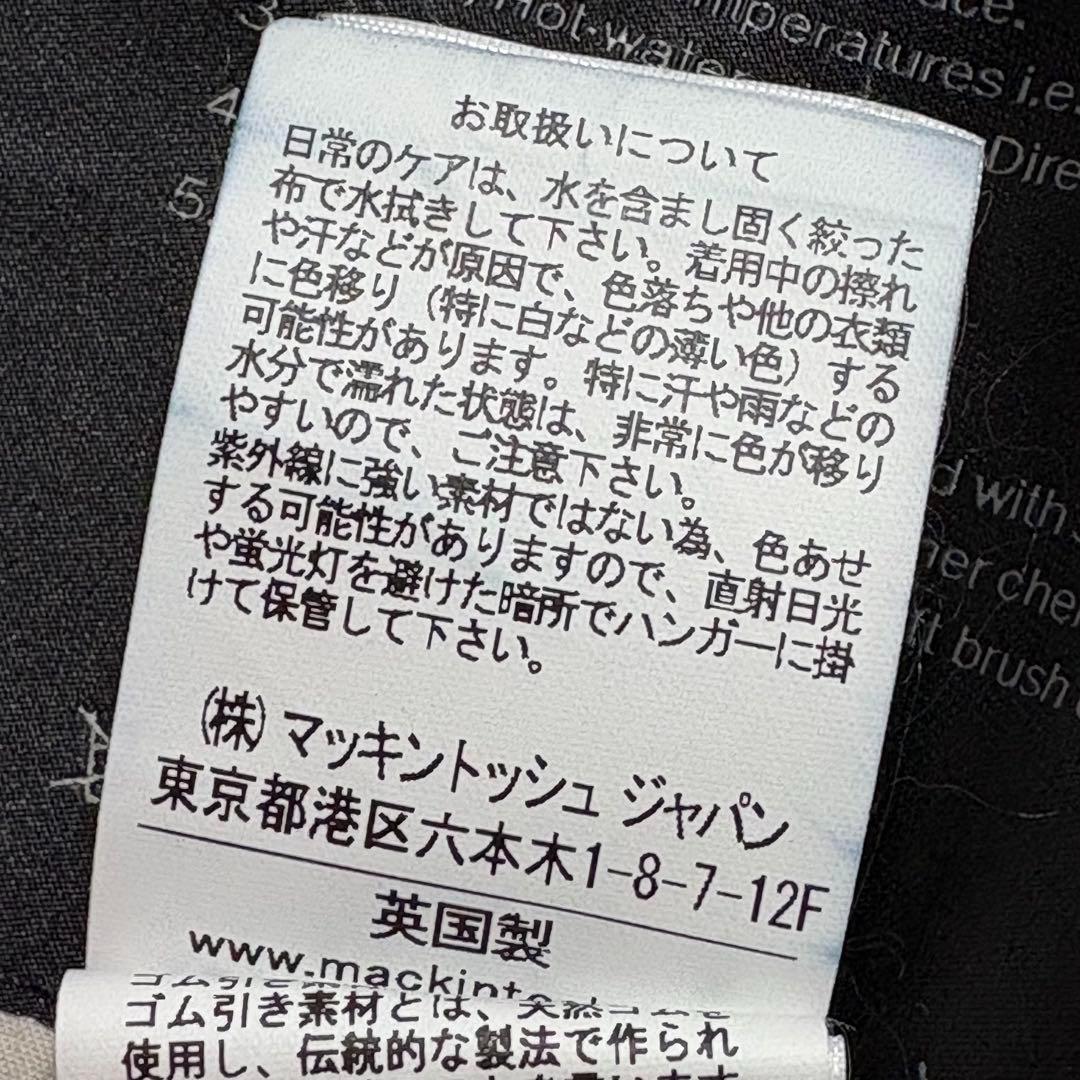 3
Hot water
temperatures i.e.
4
Dire
5
お取扱いについて
日常のケアは、水を含まし固く絞った
布で水拭きして下さい。着用中の擦れ
や汗などが原因で、色落ちや他の衣類
に色移り（特に白などの薄い色）する
可能性があります。特に汗や雨などの
水分で濡れた状態は、非常に色が移り
やすいので、ご注意下さい。
紫外線に強い素材ではない為、色あせ
する可能性がありますので、直射日光
や蛍光灯を避けた暗所でハンガーに掛
けて保管して下さい。
d with
her che
ft brush
(株) マッキントッシュ ジャパン
東京都港区六本木1-8-7-12F
英国製
www.mackint
ゴム引き素材とは、天然ゴムを
使用し、伝統的な製法で作られ